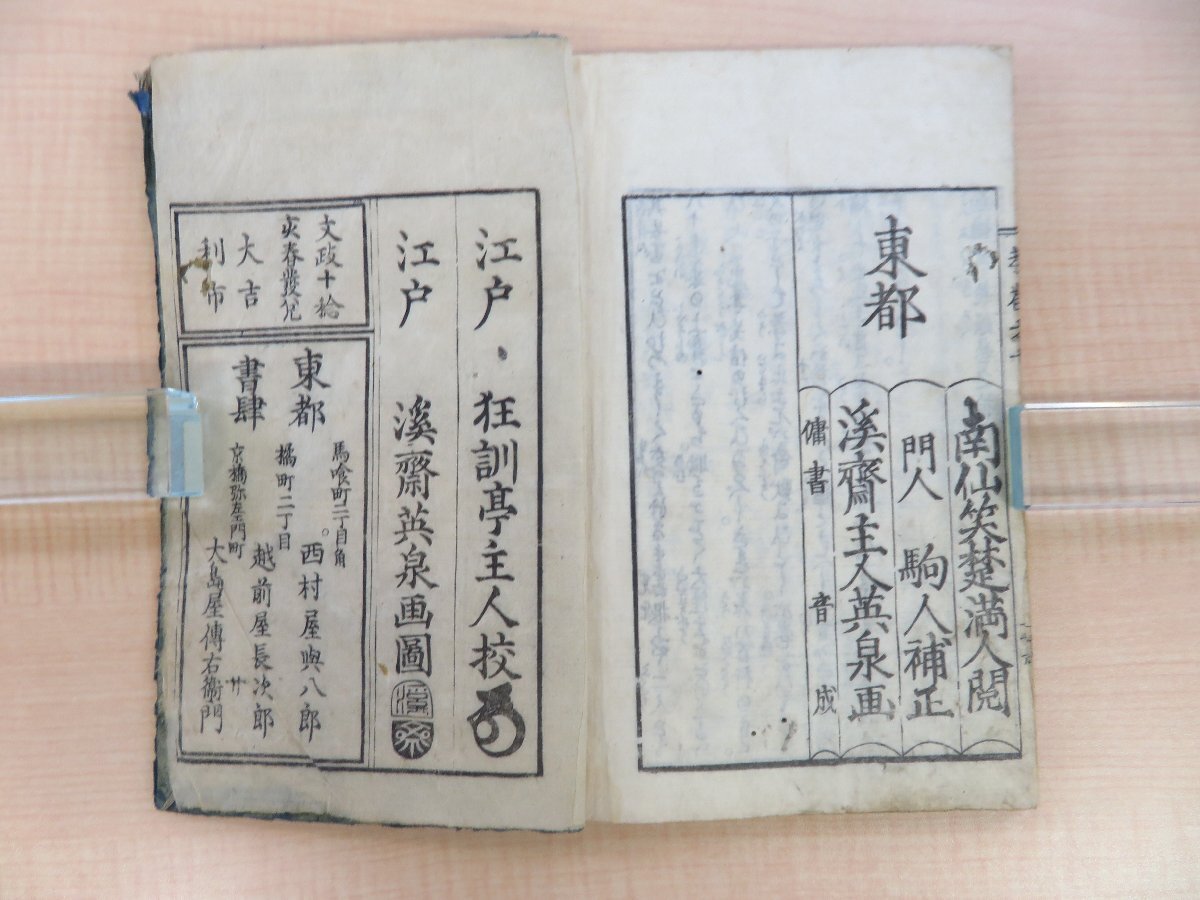 東都
南仙笑楚満人閲
門人 駒人補正
溪齋主人英泉画
傭書 音成
江戸 狂訓亭主人校
江戸 溪齋英泉画圖
文政十稔
亥春發兌
大吉
利市
東都
書肆
馬喰町二丁目角
西村屋與八郎
橘町二丁目
越前屋長次郎
京橋弥左エ門町
大島屋傳右衞門